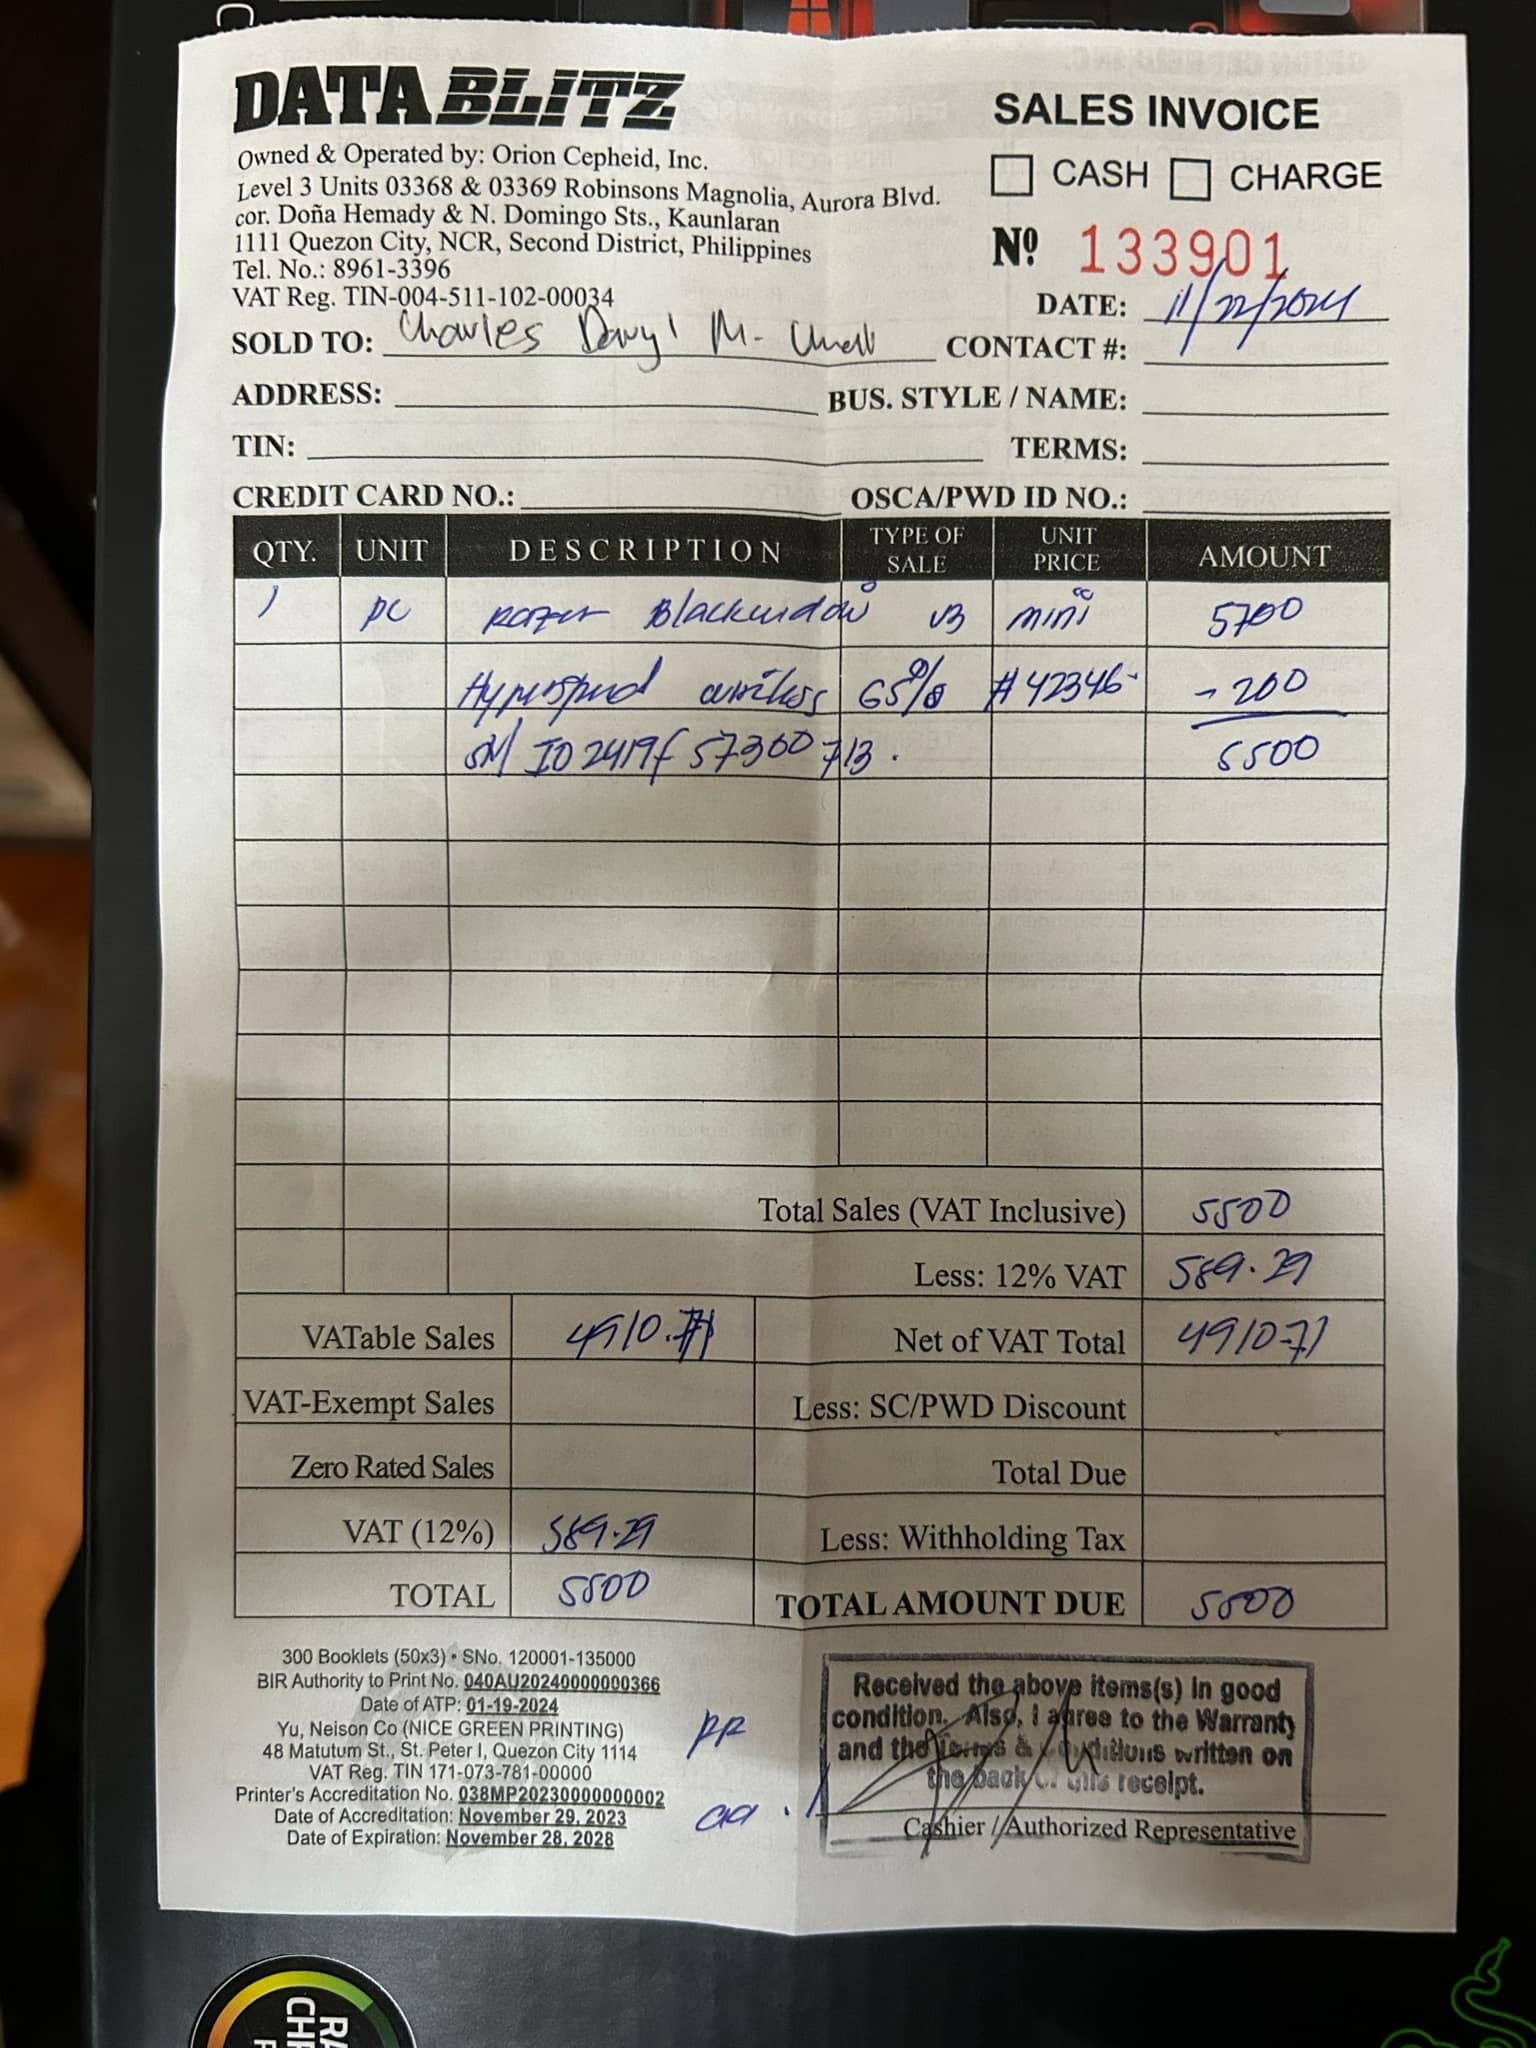 DATA BLITZ
Owned & Operated by: Orion Cepheid, Inc.
Level 3 Units 03368 & 03369 Robinsons Magnolia, Aurora Blvd.
cor. Doña Hemady & N. Domingo Sts., Kaunlaran
1111 Quezon City, NCR, Second District, Philippines
Tel. No.: 8961-3396
VAT Reg. TIN-004-511-102-00034
SALES INVOICE
CASH CHARGE
Nº 133901
DATE: 11/22/2024
SOLD TO: Charles Daryl M. CONTACT #:
ADDRESS: BUS. STYLE / NAME:
TIN: TERMS:
CREDIT CARD NO.: OSCA/PWD ID NO.:
QTY. UNIT DESCRIPTION TYPE OF SALE UNIT PRICE AMOUNT
1 pc Razer Blackwidow v3 mini 5700
Hyperspeed wireless 65% #42346- -200
SN IO2419F57300713. 5500
Total Sales (VAT Inclusive) 5500
Less: 12% VAT 589.29
VATable Sales 4910.71 Net of VAT Total 4910.71
VAT-Exempt Sales Less: SC/PWD Discount
Zero Rated Sales Total Due
VAT (12%) 589.29 Less: Withholding Tax
TOTAL 5500 TOTAL AMOUNT DUE 5500
300 Booklets (50x3) • SNo. 120001-135000
BIR Authority to Print No. 040AU20240000000366
Date of ATP: 01-19-2024
Yu, Neison Co (NICE GREEN PRINTING)
48 Matutum St., St. Peter I, Quezon City 1114
VAT Reg. TIN 171-073-781-00000
Printer's Accreditation No. 038MP20230000000002
Date of Accreditation: November 29, 2023
Date of Expiration: November 28, 2028
Received the above items(s) in good
condition. Also, I agree to the Warranty
and the Terms & Conditions written on
the back of this receipt.
Cashier / Authorized Representative